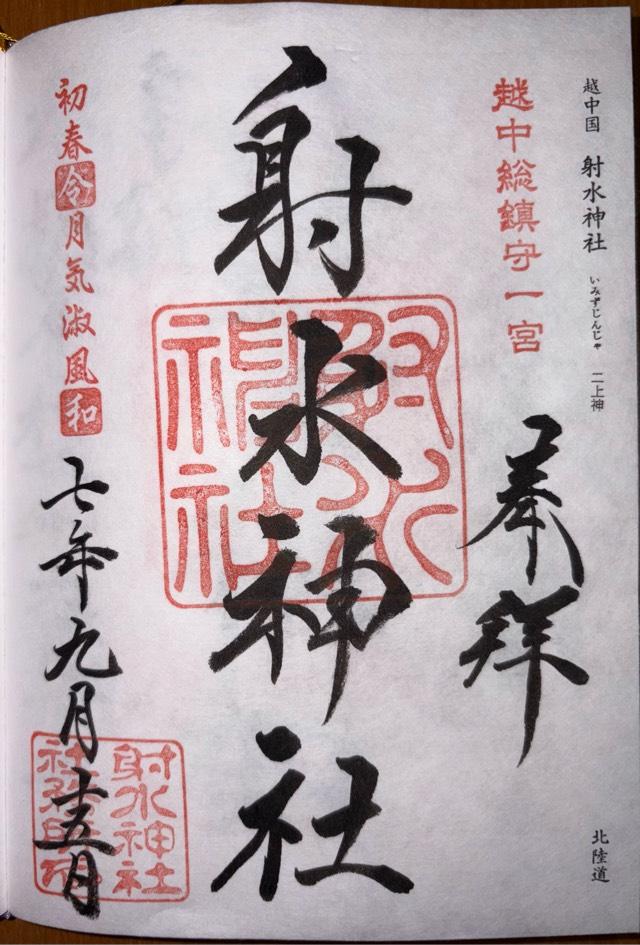 越中国 射水神社 いみずじんじゃ 二上神
北陸道
越中総鎮守一宮
奉拝
射水神社
射水神社
初春令月気淑風和
七年九月十五日
射水神社